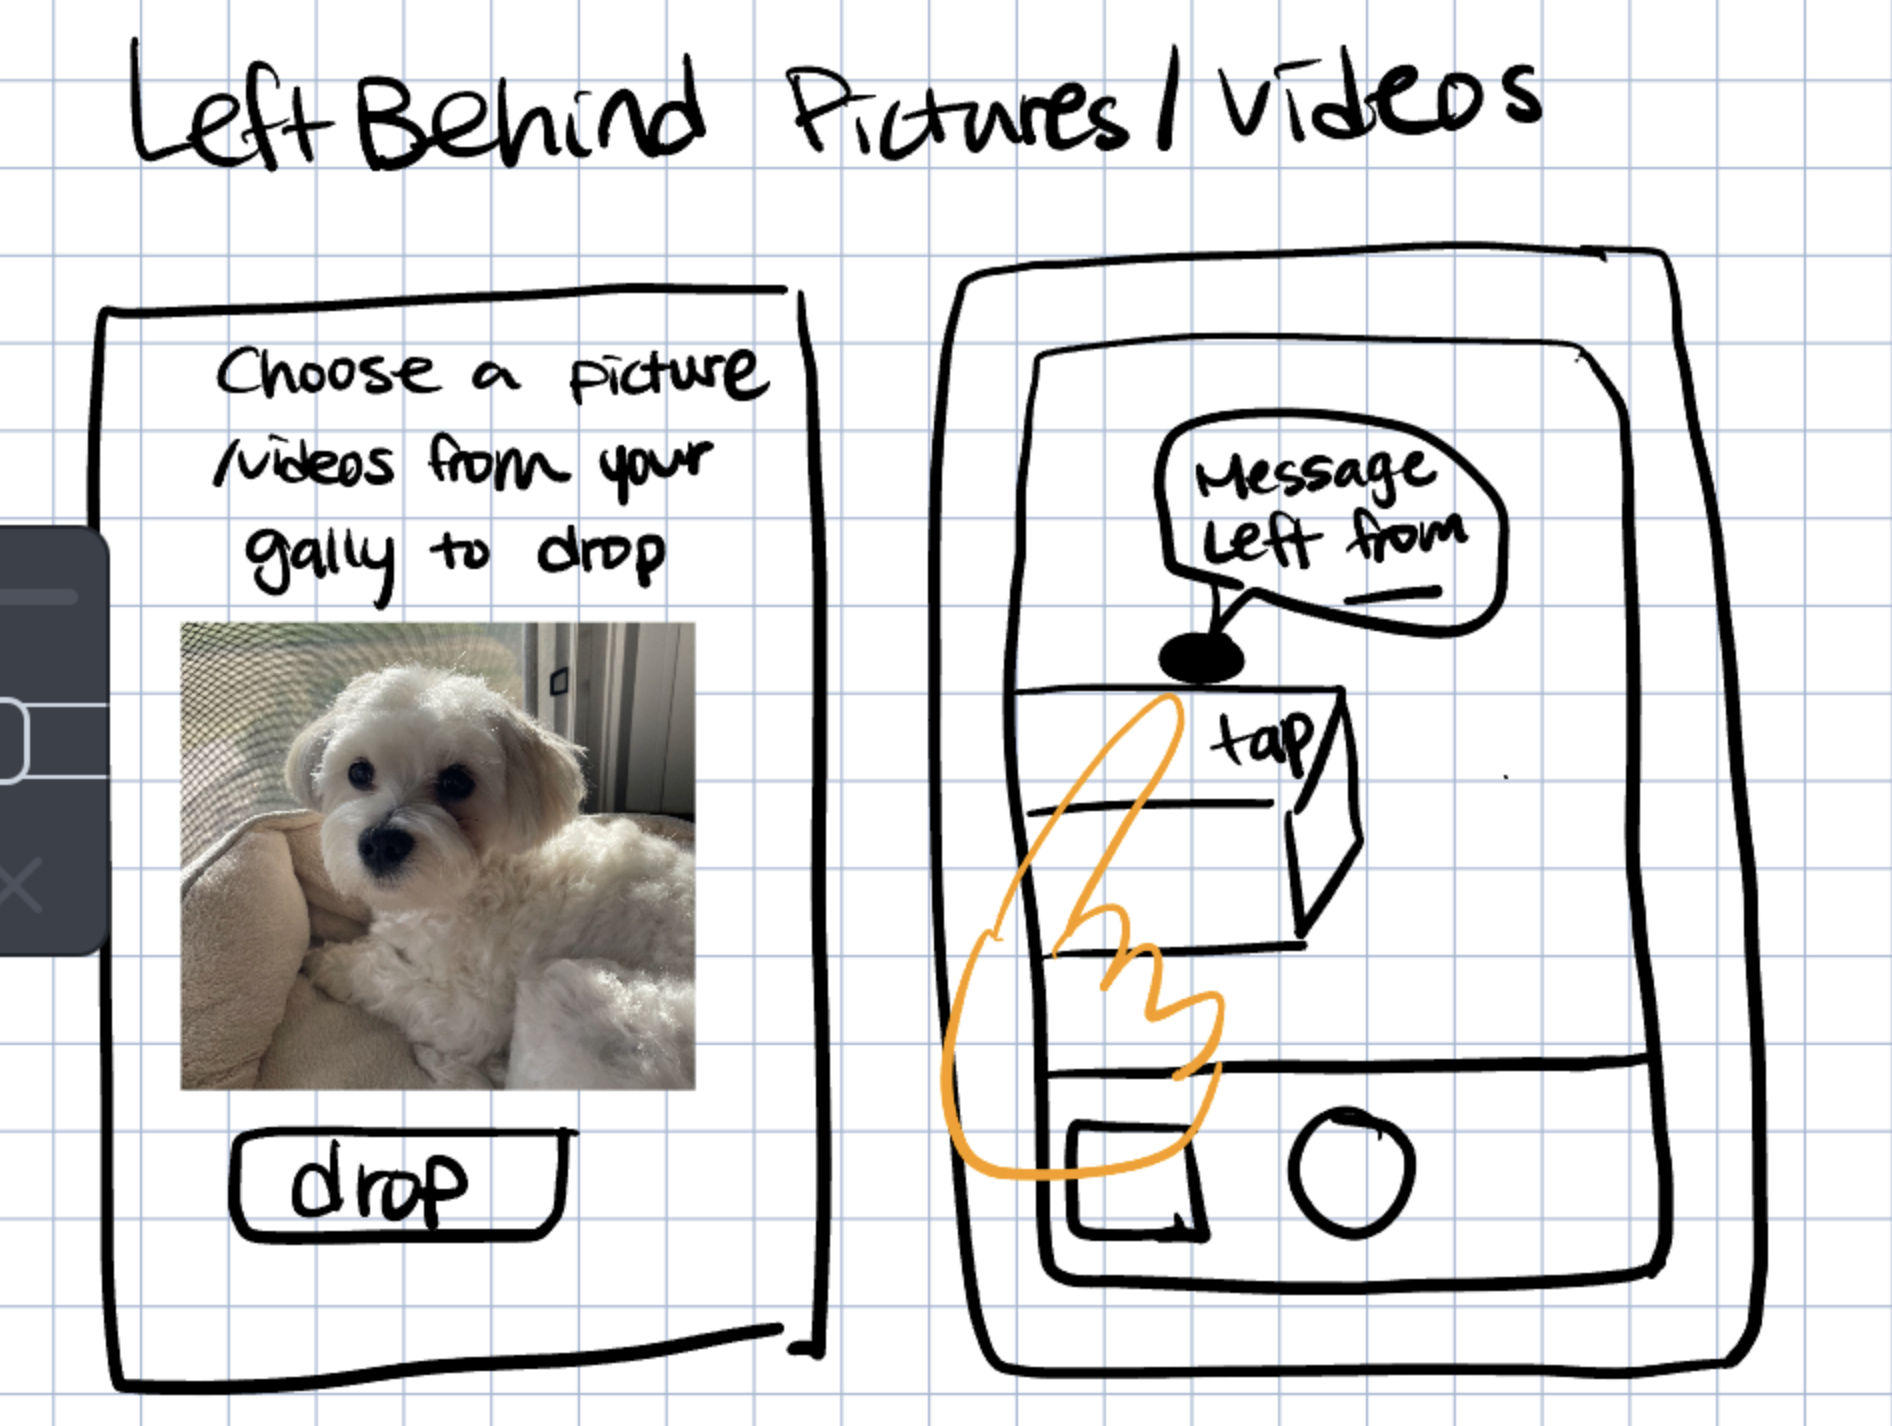 Left Behind Pictures / Videos
Choose a picture
/videos from your
gally to drop
drop
Message
Left from
tap